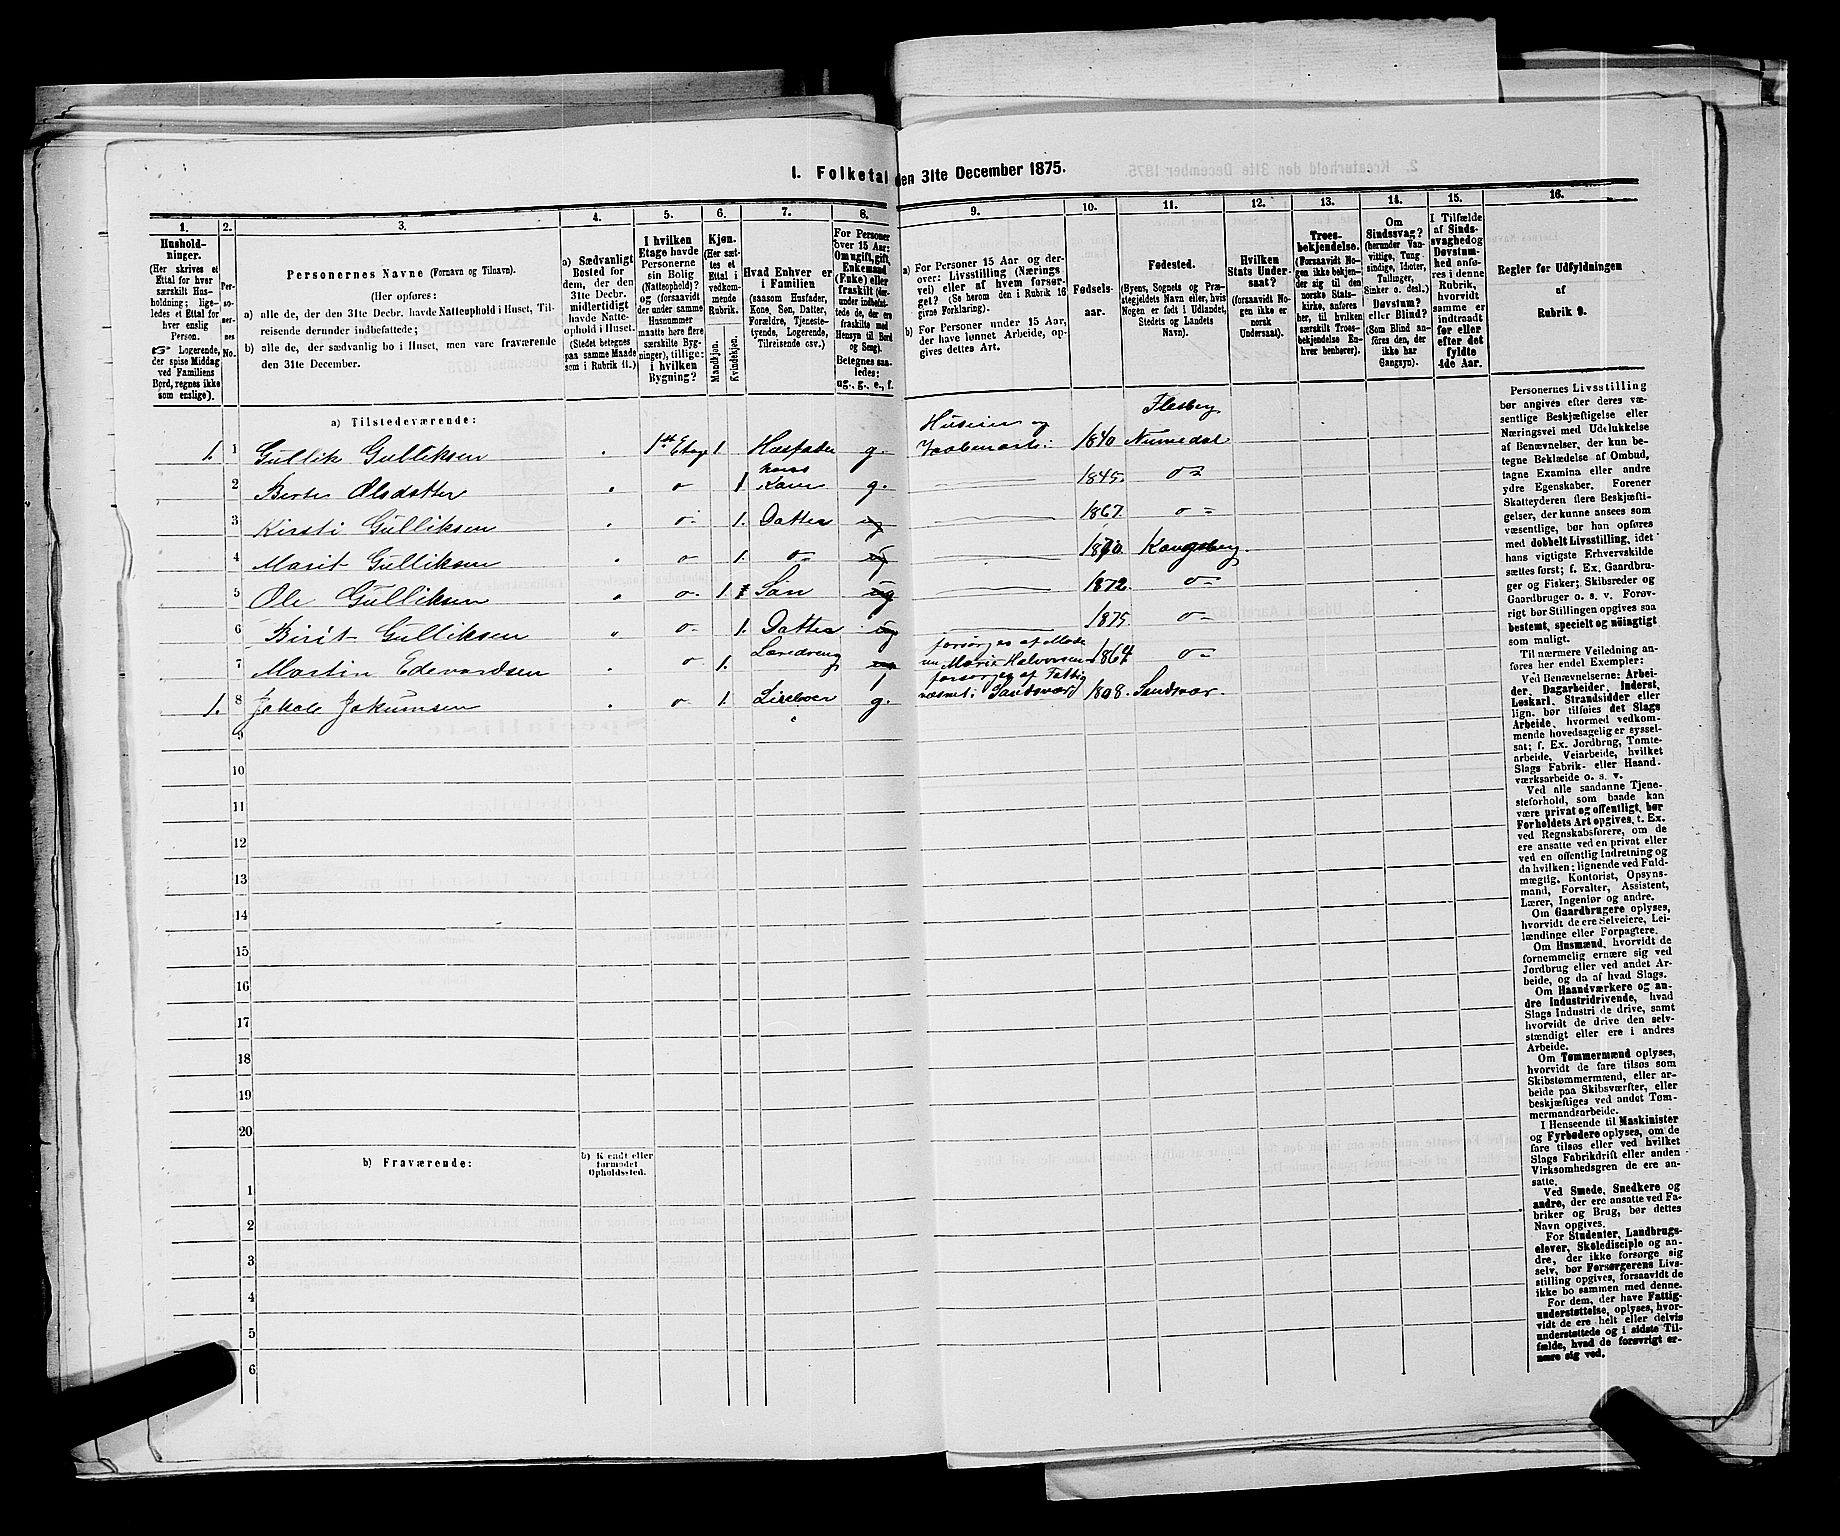 1. Folketal den 31te December 1875.
1. 2. 3. 4. 5. 6. 7. 8. 9. 10. 11. 12. 13. 14. 15. 16.
Hushold-
ninger.
(Her skrives et
Ettal for hver
særskilt Hus-
holdning; lige-
ledes et Ettal for
hver enslig
Person.
☞ Logerende,
der spise Middag
ved Familiens
Bord, regnes ikke
som enslige).
Per-
so-
ner-
nes
No.
Personernes Navne (Fornavn og Tilnavn).
(Her opføres:
a) alle de, der den 31te Decbr. havde Natteophold i Huset, Til-
reisende derunder indbefattede;
b) alle de, der sædvanlig bo i Huset, men vare fraværende
den 31te December.
a) Sædvanligt
Bosted for
dem, der den
31te Decbr.
midlertidigt
havde Natte-
ophold i Huset.
(Stedet betegnes
paa samme Maade
som i Rubrik 11.)
I hvilken
Etage havde
Personerne
sin Bolig
(Natteophold)?
og (forsaavidt
der under samme
Husnummer
maatte høre flere
særskilte Byg-
ninger), tillige:
i hvilken
Bygning?
Kjøn.
(Her sæt-
tes et
Ettal i
vedkom-
mende
Rubrik.
Mandkjøn.
Kvindekjøn.
Hvad Enhver er
i Familien
(saasom Husfader,
Kone, Søn, Datter,
Forældre, Tjeneste-
tyende, Logerende,
Tilreisende osv.)
For Personer
over 15 Aar:
Om ugift, gift,
Enkemand
(Enke) eller
fraskilt (der-
under indbefat-
tede de, der ere
fraskilte med
Hensyn til Bord
og Seng).
Betegnes saa-
ledes:
ug., g., e., f.
a) For Personer 15 Aar og der-
over: Livsstilling (Nærings
vei) eller af hvem forsør-
get? (Se herom den i Rubrik 16
givne Forklaring).
b) For Personer under 15 Aar,
der have lønnet Arbeide, op-
gives dettes Art.
Fødsels-
aar.
Fødested.
(Byens, Sognets og Præ-
stegjeldets Navn eller, hvis
Nogen er født i Udlandet,
Stedets og Landets
Navn).
Hvilken
Stats Under-
saat?
(forsaavidt No-
gen ikke er
norsk
Undersaat).
Troes-
bekjendelse.
(Forsaavidt No-
gen ikke bekjen-
der sig til den
norske Stats-
kirke, anføres
her, til hvilken
særskilt Troes-
bekjendelse En-
hver henhører).
Om
Sindssvag?
(herunder Van-
vittige, Tung-
sindige, Idioter,
Tullinger,
Sinker o. desl.)
Døvstum?
eller Blind?
(Som Blind an-
føres den, der
ikke har
Gangsyn).
I Tilfælde
af Sinds-
svaghed og
Døvstum-
hed anfø-
res i denne
Rubrik,
hvorvidt
samme er
indtraadt
før eller
efter det
fyldte
4de Aar.
Regler for Udfyldningen
af
Rubrik 9.
a) Tilstedeværende:
Flesberg
Huseier og
1. 1 Gullik Gulliksen 1st Etage 1 Husfader g. 1840 Numedal
hans
2 Berte Olsdatter 1 Kone g. 1845.
3 Kirsti Gulliksen 1. Datter ug 1867.
4 Marit Gulliksen 1. ug 1870 Kongsberg.
5 Ole Gulliksen 1. Søn ug 1872
6 Birit Gulliksen 1. Datter ug 1875
forsørges af Mode
7 Martin Edevardsen 1. ug Marie Halvorsen 1864
forsørges af Fattig
1. 8 Jakob Jokumsen 1. g. væsnet i Sandsvær 1808. Sandsvær.
9
10
11
12
13
14
15
16
17
18
19
20
b) Fraværende:
b) Kjendt eller
formodet
Opholdssted.
1
2
3
4
5
6
Personernes Livsstilling
bør angives efter deres væ-
sentlige Beskjæftigelse eller
Næringsvei med Udelukkelse
af Benævnelser, der kun be-
tegne Beklædelse af Ombud,
tagne Examina eller andre
ydre Egenskaber. Forener
Skatteyderen flere Beskjæfti-
gelser, der kunne ansees som
væsentlige, bør han opføres
med dobbelt Livsstilling, idet
hans vigtigste Erhvervskilde
sættes først; f. Ex. Gaardbru-
ger og Fisker; Skibsreder og
Gaardbruger o. s. v. Forøv-
rigt bør Stillingen opgives saa
bestemt, specielt og nøiagtigt
som muligt.
Til nærmere Veiledning an-
føres her endel Exempler:
Ved Benævnelserne: Arbei-
der, Dagarbeider, Inderst,
Løskarl, Strandsidder eller
lign. bør tilføies det Slags
Arbeide, hvormed vedkom-
mende hovedsagelig er syssel-
sat; f. Ex. Jordbrug, Tomte-
arbeide, Veiarbeide, hvilket
Slags Fabrik- eller Haand-
værksarbeide o. s. v.
Ved alle saadanne Tjene-
steforhold, som baade kan
være privat og offentligt, bør
Forholdets Art opgives, t. Ex.
ved Regnskabsførere, om de
ere ansatte ved en privat eller
ved en offentlig Indretning og
da hvilken; lignende ved Fuld-
mægtig, Kontorist, Opsyns-
mand, Forvalter, Assistent,
Lærer, Ingeniør og andre.
Om Gaardbrugere oplyses,
hvorvidt de ere Selveiere, Lei-
lændinge eller Forpagtere.
Om Husmænd, hvorvidt de
fornemmelig ernære sig ved
Jordbrug eller ved andet Ar-
beide, og da af hvad Slags.
Om Haandværkere og an-
dre Industridrivende, hvad
Slags Industri de drive, samt
hvorvidt de drive den selv-
stændigt eller ere i andres
Arbeide.
Om Tømmermænd oplyses,
hvorvidt de fare tilsøs som
Skibstømmermænd, eller ar-
beide paa Skibsværfter, eller
beskjæftiges ved andet Tøm-
mermandsarbeide.
I Henseende til Maskinister
og Fyrbødere oplyses, om de
fare tilsøs eller ved hvilket
Slags Fabrikdrift eller anden
Virksomhedsgren de ere an-
satte.
Ved Smede, Snedkere og
andre, der ere ansatte ved Fa-
briker og Brug, bør dettes
Navn opgives.
For Studenter, Landbrugs-
elever, Skoledisciple og an-
dre, der ikke forsørge sig
selv, bør Forsørgerens Livs-
stilling opgives, forsaavidt de
ikke bo sammen med denne.
For dem, der have Fattig-
understøttelse, oplyses, hvor-
vidt de ere helt eller delvis
understøttede og i sidste Til-
fælde, hvad de forøvrigt er-
nære sig ved.